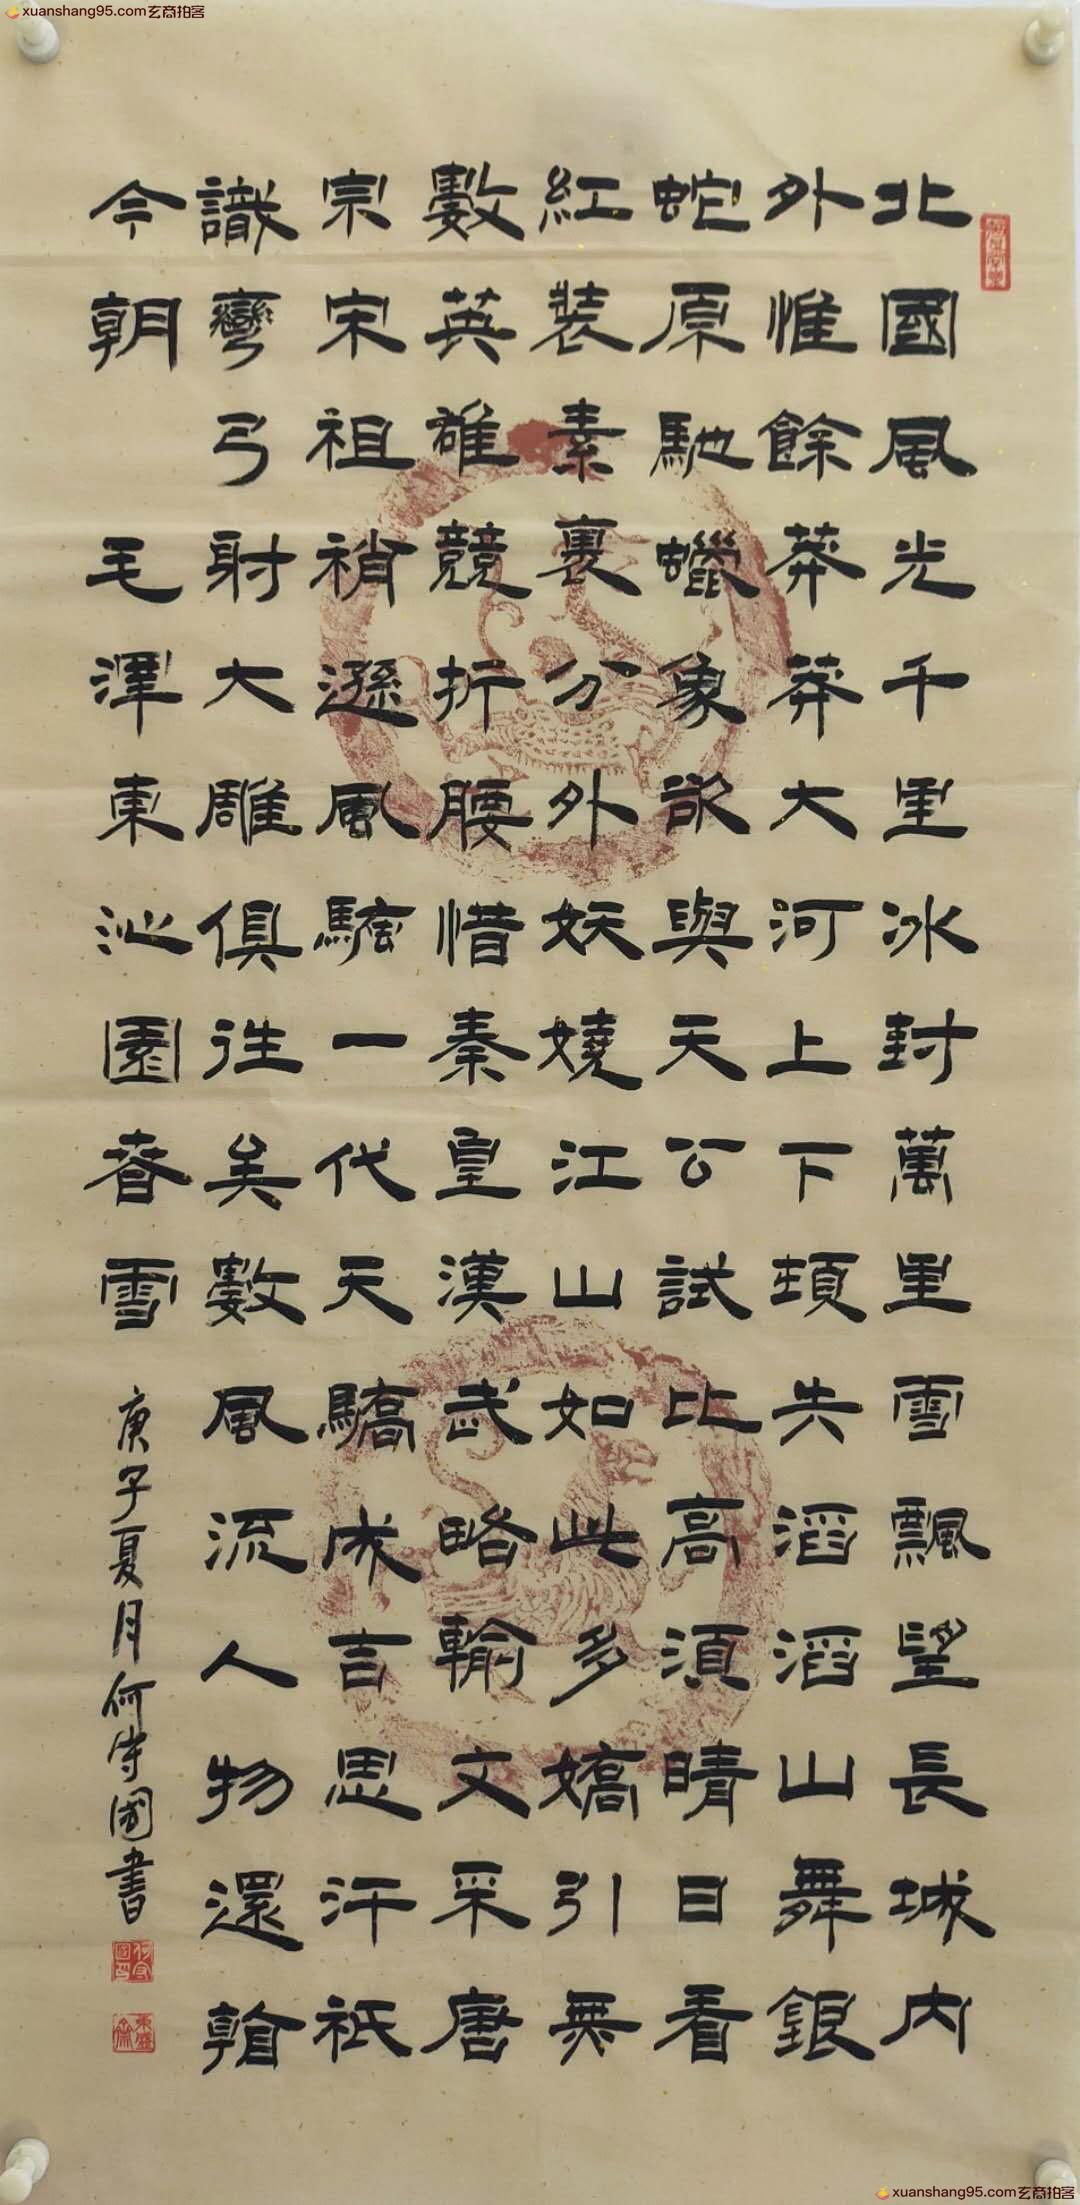 xuanshang95.com玄商拍客
北國風光千里冰封萬里雪飄望長城內
外惟餘莽莽大河上下頓失滔滔山舞銀
蛇原馳蠟象欲與天公試比高須晴日看
紅裝素裹分外妖嬈江山如此多嬌引無
數英雄競折腰惜秦皇漢武略輸文采唐
宗宋祖稍遜風騷一代天驕成吉思汗祇
識彎弓射大雕俱往矣數風流人物還看
今朝 毛澤東沁園春雪 庚子夏月何守國書
xuanshang95.com玄商拍客